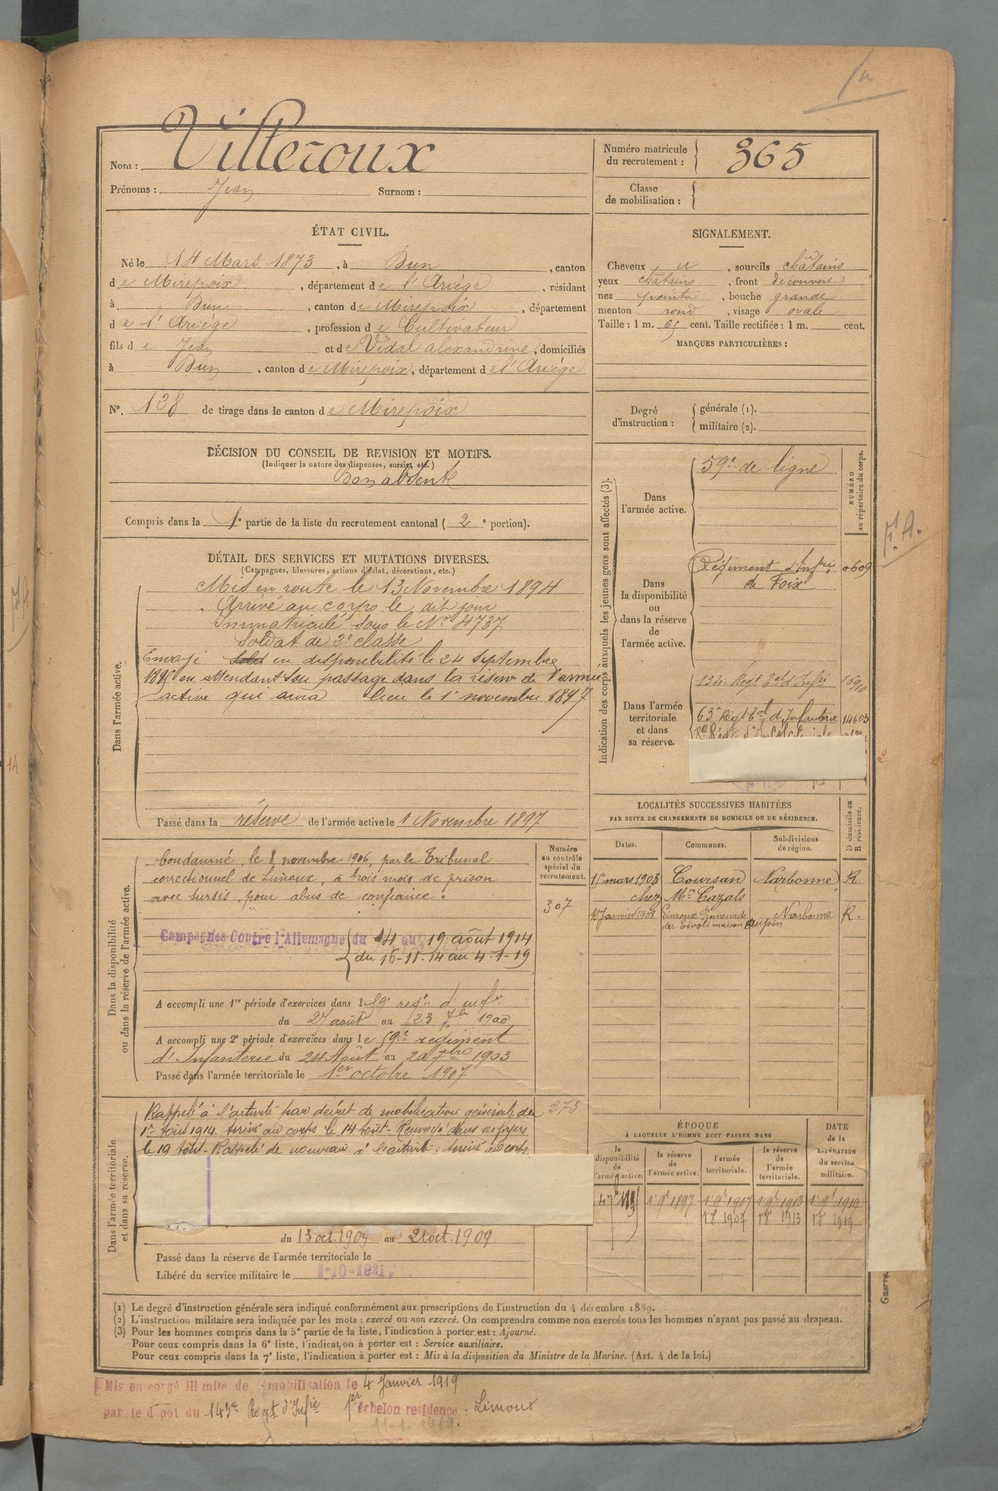 Nom : Villeroux
Prénoms : Jean Surnom :
Numéro matricule du recrutement : 365
Classe de mobilisation :
ÉTAT CIVIL.
Né le 14 Mars 1873, à Dun, canton
de Mirepoix, département de l'Ariége, résidant
à Dun, canton de Mirepoix, département
de l'Ariége, profession de Cultivateur
fils de Jean et de Vidal alexandrine, domiciliés
à Dun, canton de Mirepoix, département de l'Ariége
N° 128 de tirage dans le canton de Mirepoix
SIGNALEMENT.
Cheveux et, sourcils châtains
yeux châtains, front découvert
nez pointu, bouche grande
menton rond, visage ovale
Taille : 1 m. 65 cent. Taille rectifiée : 1 m. cent.
MARQUES PARTICULIÈRES :
Degré d'instruction : générale (1).
militaire (2).
DÉCISION DU CONSEIL DE REVISION ET MOTIFS.
(Indiquer la nature des dispenses, sursis, etc.)
Bon absent
Compris dans la 1e partie de la liste du recrutement cantonal (2e portion).
DÉTAIL DES SERVICES ET MUTATIONS DIVERSES.
(Campagnes, blessures, actions d'éclat, décorations, etc.)
Dans l'armée active.
Mis en route le 13 Novembre 1894
Arrivé au corps le dit jour
Immatriculé sous le N° 4787
Soldat de 2e classe
Envoyé en disponibilité le 24 septembre
en attendant son passage dans la réserve de l'armée
active qui aura lieu le 1er novembre 1897
Passé dans la réserve de l'armée active le 1 Novembre 1897
Indication des corps auxquels les jeunes gens sont affectés (3).
Dans l'armée active.
59e de ligne
NUMÉRO au répertoire du corps.
Dans la disponibilité ou dans la réserve de l'armée active.
Régiment d'Infrie
de Foix
0609
Dans l'armée territoriale et dans sa réserve.
134e Régt
63e Régt d'Infanterie 14603
P.A.
LOCALITÉS SUCCESSIVES HABITÉES
PAR SUITE DE CHANGEMENTS DE DOMICILE OU DE RÉSIDENCE.
Dates. Communes. Subdivisions de région. D domicile ou R résidence.
15 mars 1903 Coursan Narbonne R
chez Mr Cazals
10 Janvier 1908 Limoux Promenade Narbonne R.
de Tivoli maison
Dans la disponibilité ou dans la réserve de l'armée active.
Numéro au contrôle spécial du recrutement.
307
Condamné, le 8 novembre 1906, par le Tribunal
correctionnel de Limoux, à trois mois de prison
avec sursis, pour abus de confiance.
Campagnes Contre l'Allemagne du 14 au 19 août 1914
du 16-11-14 au 4-1-19
A accompli une 1re période d'exercices dans le 59e regt d'infie
du 27 août au 23 7bre 1900
A accompli une 2e période d'exercices dans le 59e régiment
d'Infanterie du 24 Août au 20 7bre 1903
Passé dans l'armée territoriale le 1er octobre 1907
Dans l'armée territoriale et dans sa réserve.
273
Rappelé à l'activité par décret de mobilisation générale du
1er Août 1914. Arrivé au corps le 14 Août. Renvoyé dans ses foyers
le 19 Août. Rappelé de nouveau à l'activité. Arrivé au corps
du 13 oct. 1909 au 21 oct. 1909
Passé dans la réserve de l'armée territoriale le
Libéré du service militaire le 1-10-1921.
ÉPOQUE
À LAQUELLE L'HOMME DOIT PASSER DANS
DATE de la LIBÉRATION du service militaire.
la disponibilité de l'armée active. la réserve de l'armée active. l'armée territoriale. la réserve de l'armée territoriale.
1897 1907 1913 1919
1907 1913 1919
(1) Le degré d'instruction générale sera indiqué conformément aux prescriptions de l'instruction du 4 décembre 1889.
(2) L'instruction militaire sera indiquée par les mots : exercé ou non exercé. On comprendra comme non exercés tous les hommes n'ayant pas passé au drapeau.
(3) Pour les hommes compris dans la 5e partie de la liste, l'indication à porter est : Ajourné.
Pour ceux compris dans la 6e liste, l'indication à porter est : Service auxiliaire.
Pour ceux compris dans la 7e liste, l'indication à porter est : Mis à la disposition du Ministre de la Marine. (Art. 4 de la loi.)
Mis en congé illimité de démobilisation le 4 Janvier 1919
par le dépôt du 143e Regt d'Infie 1er échelon residence - Limoux